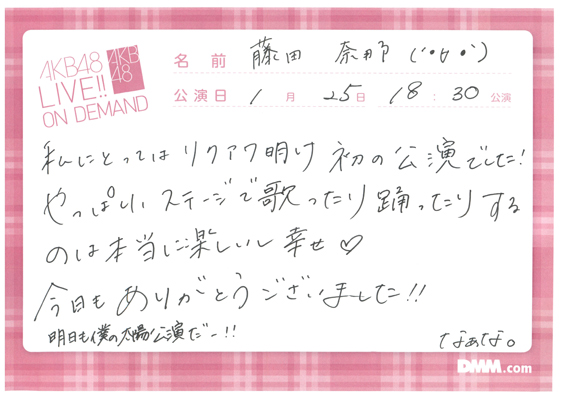 AKB48
LIVE!!
ON DEMAND
AKB
48
名前 藤田 奈那 (・ㅂ・)
公演日 1月 25日 18:30公演
私にとってはリクアワ明け 初の公演でした!
やっぱりステージで歌ったり踊ったりする
のは本当に楽しいし幸せ♡
今日もありがとうございました!!
明日も僕の太陽公演だー!!
なぁな。
DMM.com